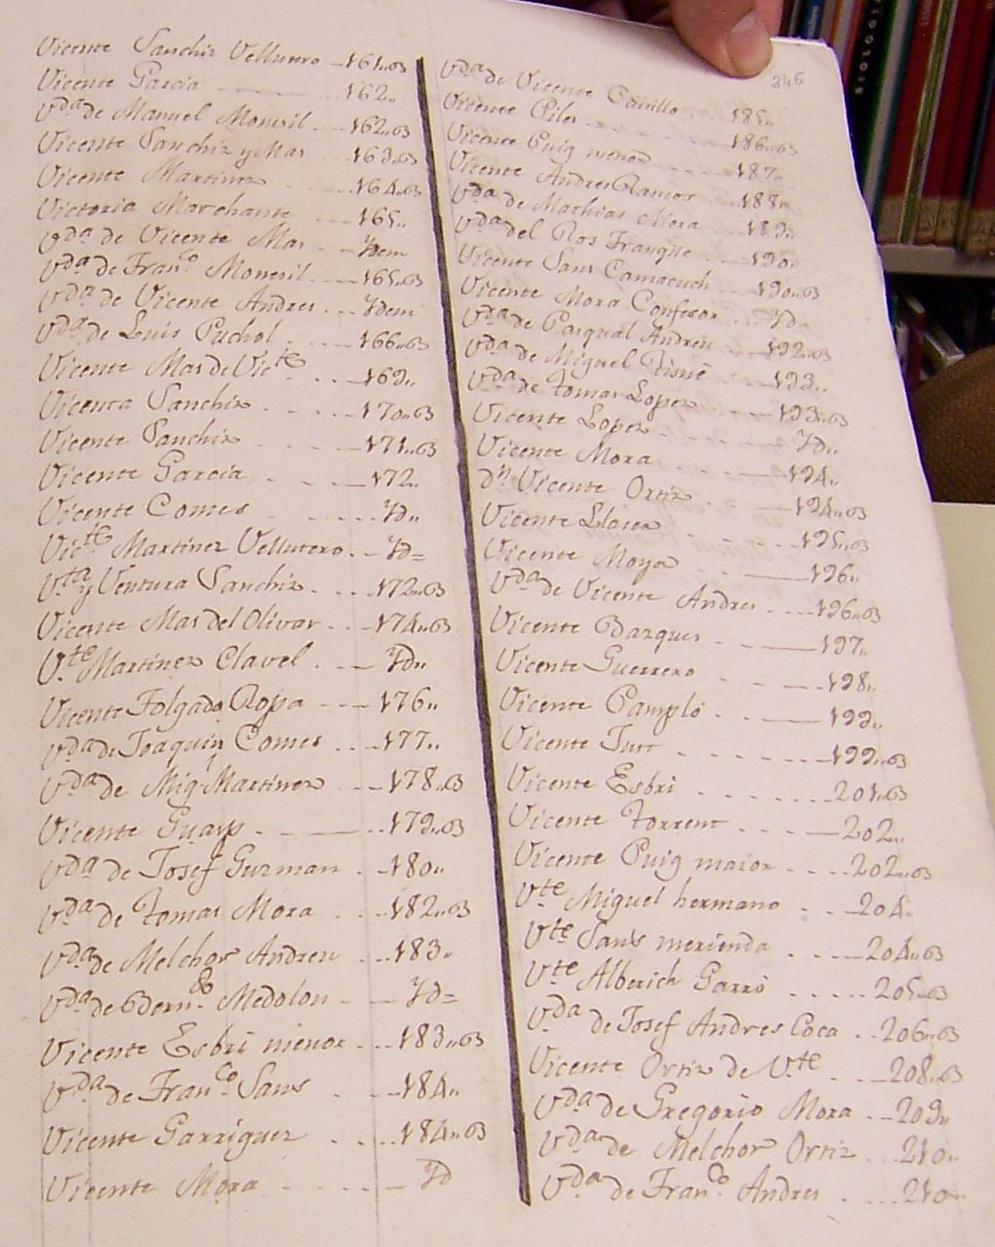 346
Vicente Sanchiz Vellutero - 161..63
Vicente Garcia 162..
Vda de Manuel Monrril 162..63
Vicente Sanchiz y Mas 163..63
Vicente Martinez 164..63
Victoria Marchante 165..
Vda de Vicente Mas Ydem
Vda de Franco Monrril 165..63
Vda de Vicente Andres Ydem
Vda de Luis Puchol 166..63
Vicente Mas de Victe 169..
Vicenta Sanchiz 170..63
Vicente Sanchiz 171..63
Vicente Garcia 172..
Vicente Comes Yd..
Victe Martinez Vellutero Yd=
Vta y Ventura Sanchiz 172..63
Vicente Mas del Olivar 174..63
Vte Martinez Clavel Yd..
Vicente Folgado Roja 176..
Vda de Joaquin Comes 177..
Vda de Mig Martinez 178..63
Vicente Guasp 179..63
Vda de Josef Guzman 180..
Vda de Tomas Mora 182..63
Vda de Melchor Andreu 183..
Vda de Bern.do Medolon Yd=
Vicente Esbri menor 183..63
Vda de Franco Sans 184..
Vicente Garrigues 184..63
Vicente Mora Yd
Vda de Vicente Carrillo 185..
Vicente Piles 186..63
Vicente Puig menor 187..
Vicente Andres Ramos 188..
Vda de Mathias Mora 189..
Vda del Ros Franqüe 190..
Vicente Sans Camacuch 190..63
Vicente Mora Confesor Yd..
Vda de Pasqual Andreu 192..63
Vda de Miguel Tisné 193..
Vda de Tomas Lopez 193..63
Vicente Lopez Yd..
Vicente Mora 194..
Dn Vicente Ortiz 194..63
Vicente Llacer 195..63
Vicente Moya 196..
Vda de Vicente Andres 196..63
Vicente Barques 197..
Vicente Guerrero 198..
Vicente Pampló 199..
Vicente Just 199..63
Vicente Esbri 201..63
Vicente Torrent 202..
Vicente Puig maior 202..63
Vte Miguel hermano 204..
Vte Sans merienda 204..63
Vte Alberich Garró 205..63
Vda de Josef Andres Coca 206..63
Vicente Ortiz de Vte 208..63
Vda de Gregorio Mora 209..
Vda de Melchor Ortiz 210..
Vda de Franco Andres 210..